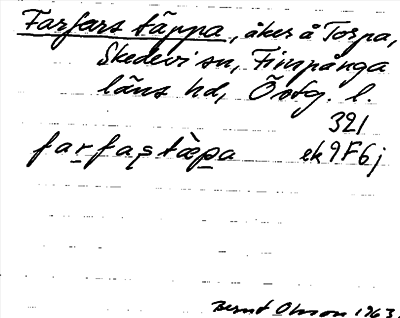 Farfars täppa, åker å Torpa,
Skedevi sn, Finspånga
läns hd, Östg. l.
321
farfas täpa ek 9F6j
Bernt Olsson 1963.